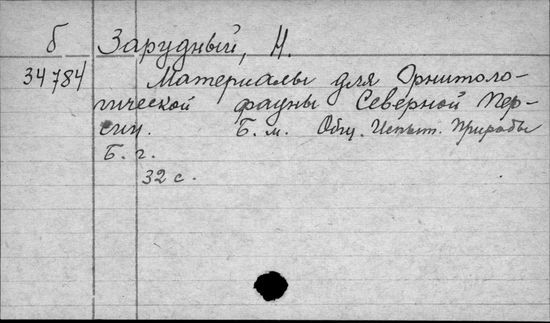 б Зарудный, Н.
34784 Материалы для Орнитоло-
гической фауны Северной Пер-
сии. Б. м. Общ. Испыт. Природы
Б. г.
32 с.